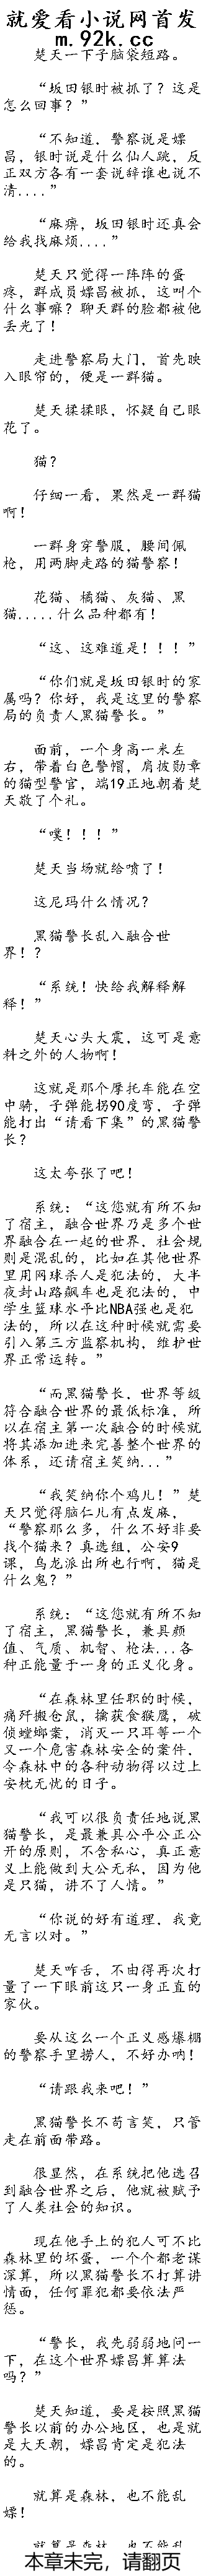 就爱看小说网首发
m.92k.cc
楚天一下子脑袋短路。
“坂田银时被抓了？这是
怎么回事？”
“不知道，警察说是嫖
昌，银时说是什么仙人跳，反
正双方各有一套说辞谁也说不
清....”
“麻痹，坂田银时还真会
给我找麻烦....”
楚天只觉得一阵阵的蛋
疼，群成员嫖昌被抓，这叫个
什么事嘛？聊天群的脸都被他
丢光了！
走进警察局大门，首先映
入眼帘的，便是一群猫。
楚天揉揉眼，怀疑自己眼
花了。
猫？
仔细一看，果然是一群猫
啊！
一群身穿警服，腰间佩
枪，用两脚走路的猫警察！
花猫、橘猫、灰猫、黑
猫.....什么品种都有！
“这、这难道是！！！”
“你们就是坂田银时的家
属吗？你好，我是这里的警察
局的负责人黑猫警长。”
面前，一个身高一米左
右，带着白色警帽，肩披勋章
的猫型警官，端19正地朝着楚
天敬了个礼。
“噗！！！”
楚天当场就给喷了！
这尼玛什么情况？
黑猫警长乱入融合世
界！？
“系统！快给我解释解
释！”
楚天心头大震，这可是意
料之外的人物啊！
这就是那个摩托车能在空
中骑，子弹能拐90度弯，子弹
能打出“请看下集”的黑猫警
长？
这太夸张了吧！
系统：“这您就有所不知
了宿主，融合世界乃是多个世
界融合在一起的世界，社会规
则是混乱的，比如在其他世界
里用网球杀人是犯法的，大半
夜封山路飙车也是犯法的，中
学生篮球水平比NBA强也是犯
法的，所以在这种时候就需要
引入第三方监察机构，维护世
界正常运转。”
“而黑猫警长，世界等级
符合融合世界的最低标准，所
以在宿主第一次融合的时候就
将其添加进来完善整个世界的
体系，还请宿主笑纳...”
“我笑纳你个鸡儿！”楚
天只觉得脑仁儿有点发麻，
“警察那么多，什么不好非要
找个猫来？真选组，公安9
课，乌龙派出所也行啊，猫是
什么鬼？”
系统：“这您就有所不知
了宿主，黑猫警长，兼具颜
值、气质、机智、枪法...各
种正能量于一身的正义化身。
“在森林里任职的时候，
痛歼搬仓鼠，擒获食猴鹰，破
侦螳螂案，消灭一只耳等一个
又一个危害森林安全的案件，
令森林中的各种动物得以过上
安枕无忧的日子。
“我可以很负责任地说黑
猫警长，是最兼具公平公正公
开的原则，不含私心，真正意
义上能做到大公无私，因为他
是只猫，讲不了人情。”
“你说的好有道理，我竟
无言以对。”
楚天咋舌，不由得再次打
量了一下眼前这只一身正直的
家伙。
要从这么一个正义感爆棚
的警察手里捞人，不好办呐！
“请跟我来吧！”
黑猫警长不苟言笑，只管
走在前面带路。
很显然，在系统把他选召
到融合世界之后，他就被赋予
了人类社会的知识。
现在他手上的犯人可不比
森林里的坏蛋，一个个都老谋
深算，所以黑猫警长不打算讲
情面，任何罪犯都要依法严
惩。
“警长，我先弱弱地问一
下，在这个世界嫖昌算算法
吗？”
楚天知道，要是按照黑猫
警长以前的办公地区，也是就
是大天朝，嫖昌肯定是犯法
的。
就算是森林，也不能乱
嫖！
就算是森林，也不能乱
本章未完，请翻页